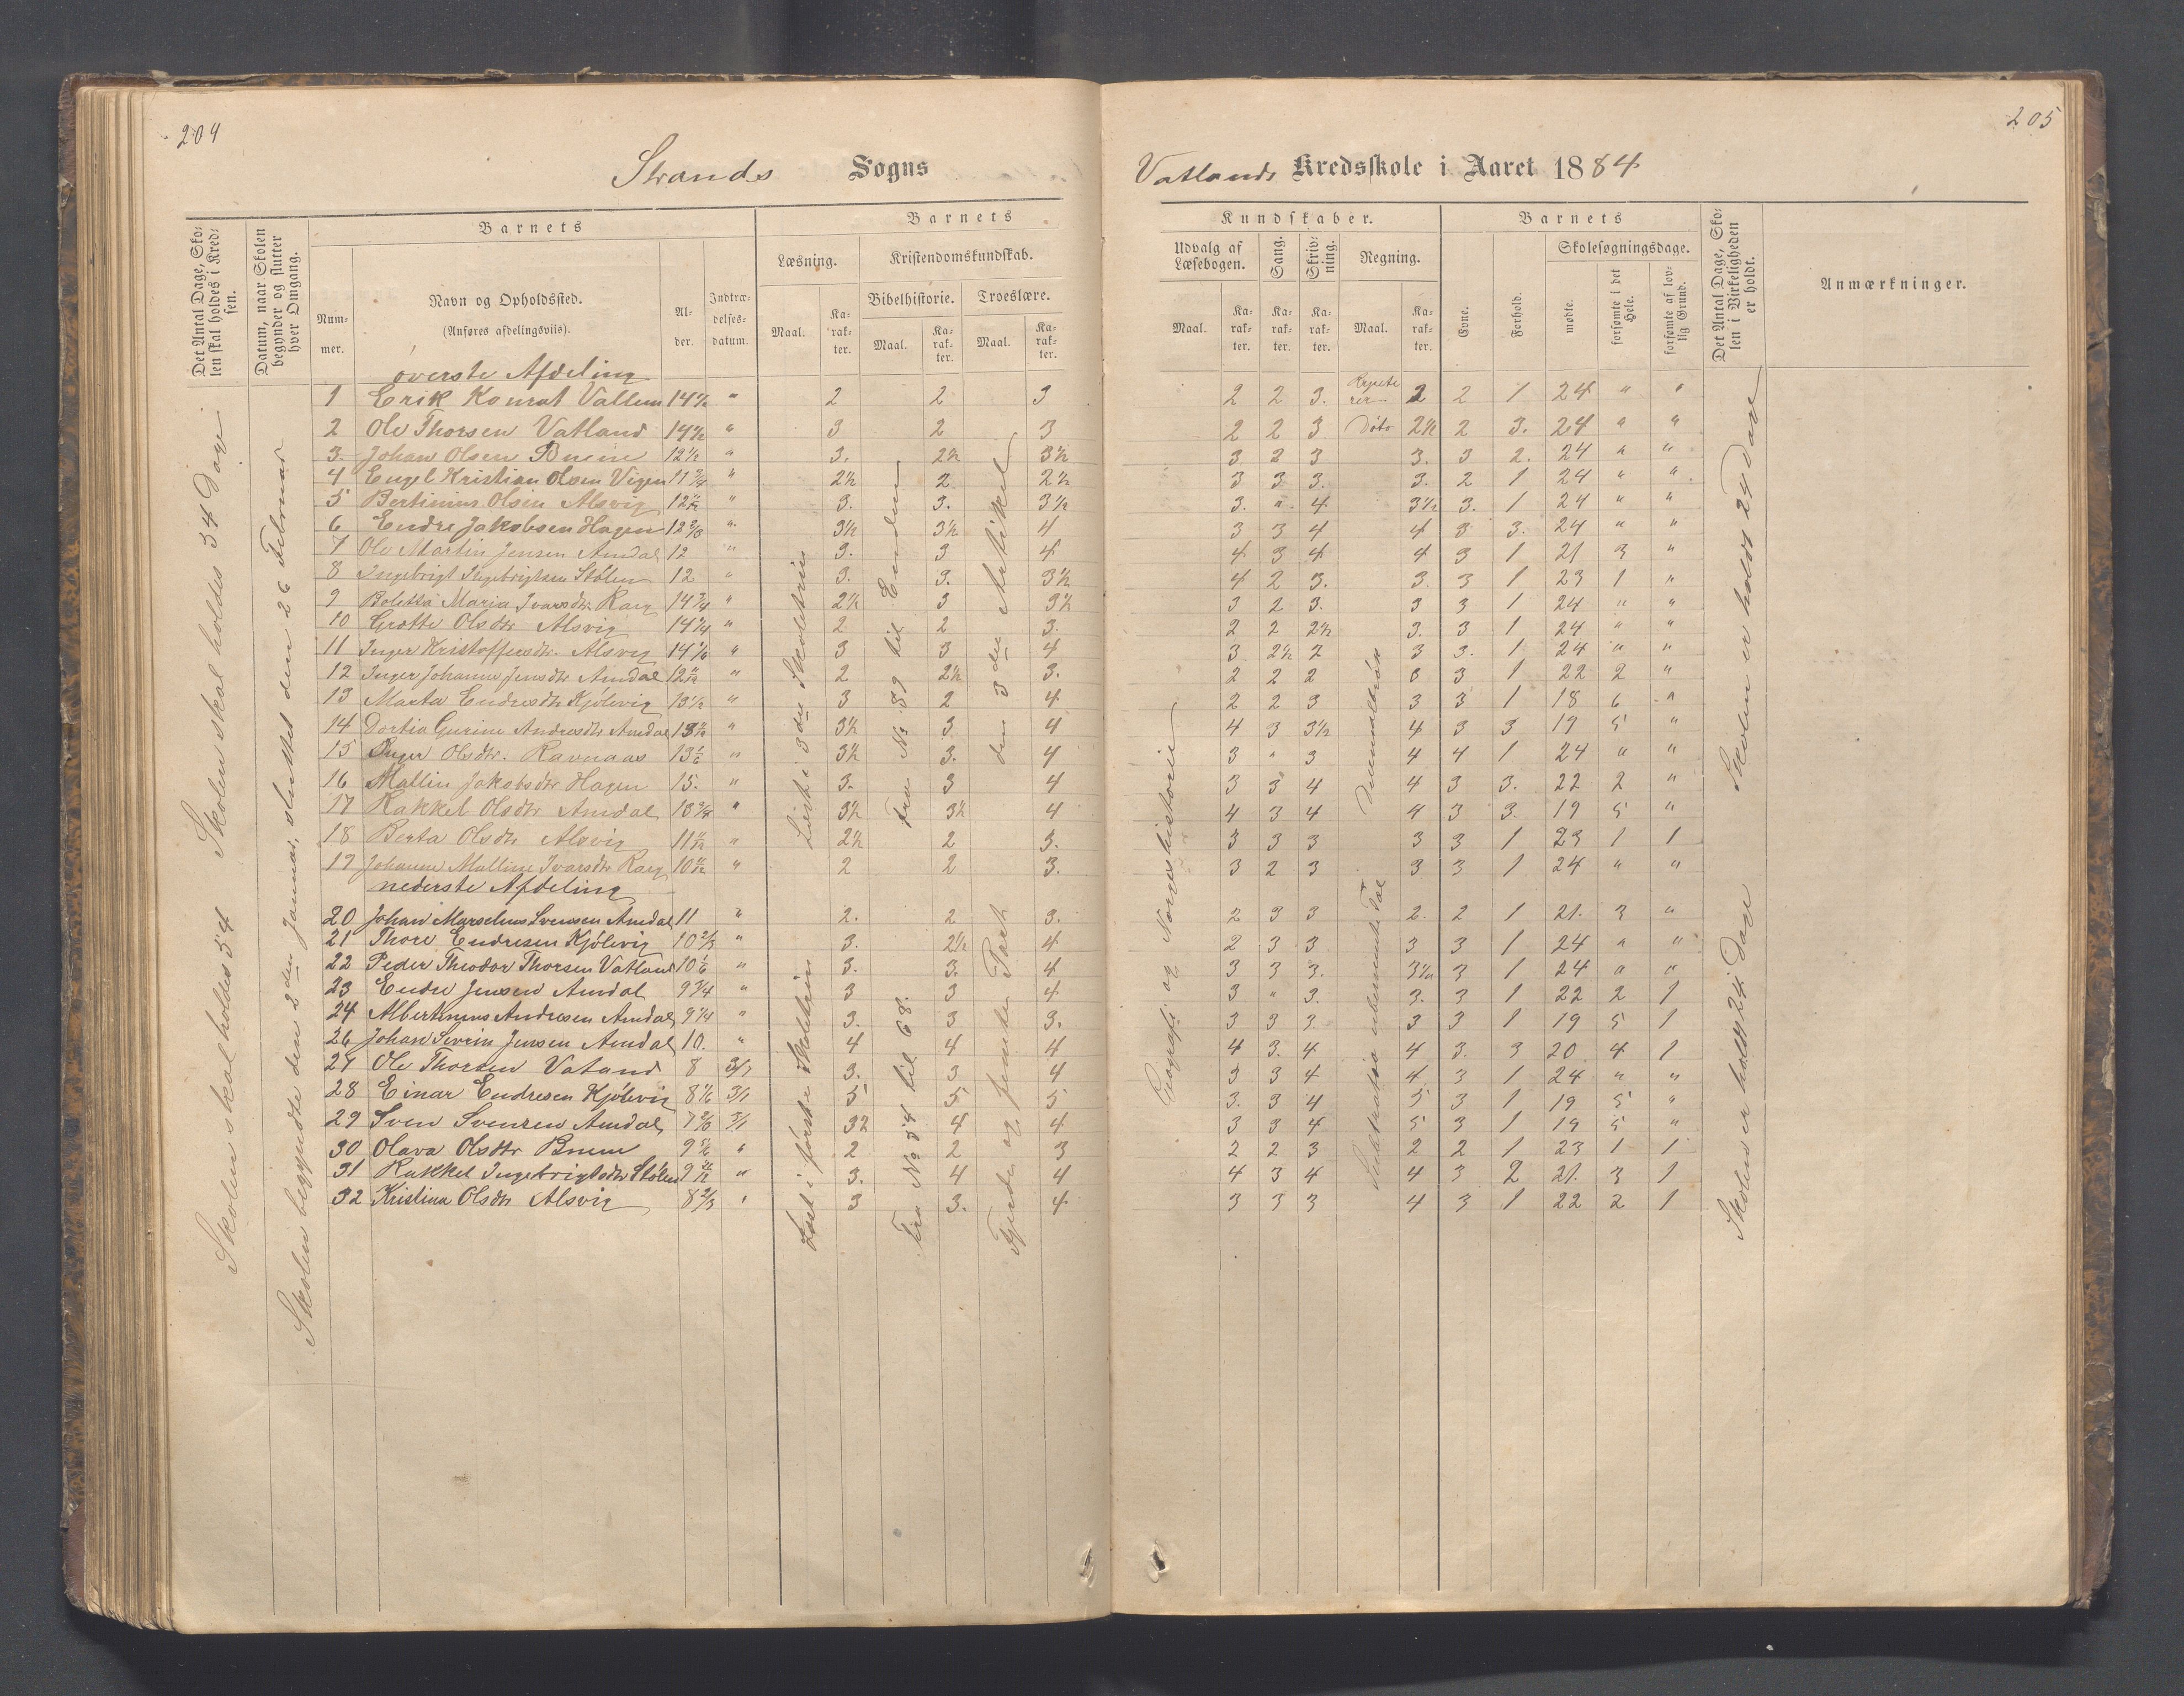 204
205
Strands Sogns
Vatlands Kredsskole i Aaret 1884.
Det Antal Dage, Skolen skal holdes i Kredsen.
Datum, naar Skolen begynder og slutter hver Omgang.
Barnets
Nummer.
Navn og Opholdssted.
(Anføres afdelingsviis).
Alder.
Indtrædelses-datum.
Barnets
Læsning.
Maal.
Karakter.
Kristendomskundskab.
Bibelhistorie.
Maal.
Karakter.
Troeslære.
Maal.
Karakter.
Kundskaber.
Udvalg af Læsebogen.
Maal.
Karakter.
Sang.
Karakter.
Skrivning.
Karakter.
Regning.
Maal.
Karakter.
Barnets
Evne.
Forhold.
Skolesøgningsdage.
mødte.
forsømte i det Hele.
forsømte af lovlig Grund.
Det Antal Dage, Skolen i Virkeligheden er holdt.
Anmærkninger.
øverste Afdeling
1 Erik Konrat Vallem " 2 2 3 2 2 3. 2 2 1 24 " "
2 Ole Thorsen Vatland " 3 2 3 2 2 3 Dito 2½ 2 3. 24 " "
3. Johan Olsen Bueie 12½ " 3. 2½ 3½ 3 2 3 3. 3 2. 24 " "
4 Engel Kristian Olsen Vigen 11¾ " 2½ 2 2½ 3 3 3. 3. 2 1 24 " "
5 Bertinius Olsen Alsvig " 3. 3. 3½ 3. " 4 3½ 3. 1 24 " "
6 Endre Jakobsen Hagen 12 " 3½ 3½ 4 3 3 4 4 3 3. 24 " "
7 Ole Martin Jensen Amdal 12 " 3. 3 4 4 3 4 4 3 1 21 3 "
8 Ingebrigt Ingebrigtsen Stølen 12 " 3. 3. 3½ 4 2 3. 3. 3 1 23 1 "
9 Boletta Maria Ivarsdtr " 2½ 3 3½ 3 2 3. 3 3 1 24 " "
10 Grotte Olsdtr Alsvig 14¾ " 2 2 3. 2 2 2½ 3. 3 1 24 " "
11 Inger Kristoffersdtr. Alsvig 14 " 3 3 4 3 2½ 2 3 3. 1 24 " "
12 Inger Johanne Jensdtr Amdal 12 " 2 2½ 3. 2 2 2 3 3 1 22 2 "
13 Marta Endresdtr Kjølevig 13½ " 3 2 4 2 2 3 3 3 1 18 6 "
14 Dortia Gurine Andreasdtr Amdal 13 " 3½ 3 4 4 3 3½ 4 3 3 19 5 "
15 Inger Olsdtr. Ravnaas 13 " 3½ 3. 4 3 " 3 4 4 1 24 " "
16 Mallin Jakobsdtr Hagen 15. " 3. 3 4 3 3 4 4 3 3. 22 2 "
17 Rakkel Olsdtr Amdal 13¾ " 3½ 3½ 4 4 3 4 4 3 3. 19 5 "
18 Berta Olsdtr Alsvig 11 " 2½ 2 3. 3 3 3 3 3 1 23 1 1
19 Johanne Malline Ivarsdtr 10 " 2 2 3. 3 2 3 3 3 1 24 " "
nederste Afdeling
20 Johan Marselius Svensen Amdal 11 " 2. 2 3. 2 3 3 2. 2 1 21. 3 "
21 Thore Endresen Kjølevig 10⅔ " 3. 2½ 4 2 3 3 3 3 1 24 " "
22 Peder Theodor Thorsen Vatland 10 " 3. 3. 4 3 3 3. 3½ 3 1 24 " "
23 Endre Jensen Amdal 9¾ " 3 3 4 3 " 3. 3. 3 1 22 2 1
24 Albertinius Andresen Amdal 9¼ " 3. 3 3. 3 3 3 3 3 1 19 5 1
26 Johan Severin Jensen Amdal 10. " 4 4 4 4 3. 4 4 3. 3 20 4 1
27 Ole Thorsen Vatand 8 3/1 3. 3 4 3 3 4 4 3 1 24 " "
28 Einar Endresen Kjølevig 8 3/1 5 5 5 3. 3 4 5 3 1 19 5 "
29 Sven Svensen Amdal 7 3/1 3½ 4 4 3 3 4 5 3 1 19 5 "
30 Olava Olsdtr Bueie 9 " 2 2 3 2 2 3 2 2 1 23 1 1
31 Rakkel Ingebrigtsdtr Stølen 9 " 3. 4 4 4 3 4 4 3 2 21. 3 1
32 Kristina Olsdtr Alsvig 8⅔ " 3 3. 4 3 3 3 4 3 1 22 2 1
Skolen skal holdes 54 Skolen skal holdes 34 Dage
Skolen begyndte den 2den Januar, sluttet den 26 Februar
Læst i 3die Skoletrin
Fra No 39 til Enden
den 3die Artikel
Læst i første Skoletrin
Fra No 54 til 68.
Fjerde og femte Part
Geografi og Norges historie
Skolen er holdt 24 Dage
Skolen er holdt 24 Dage